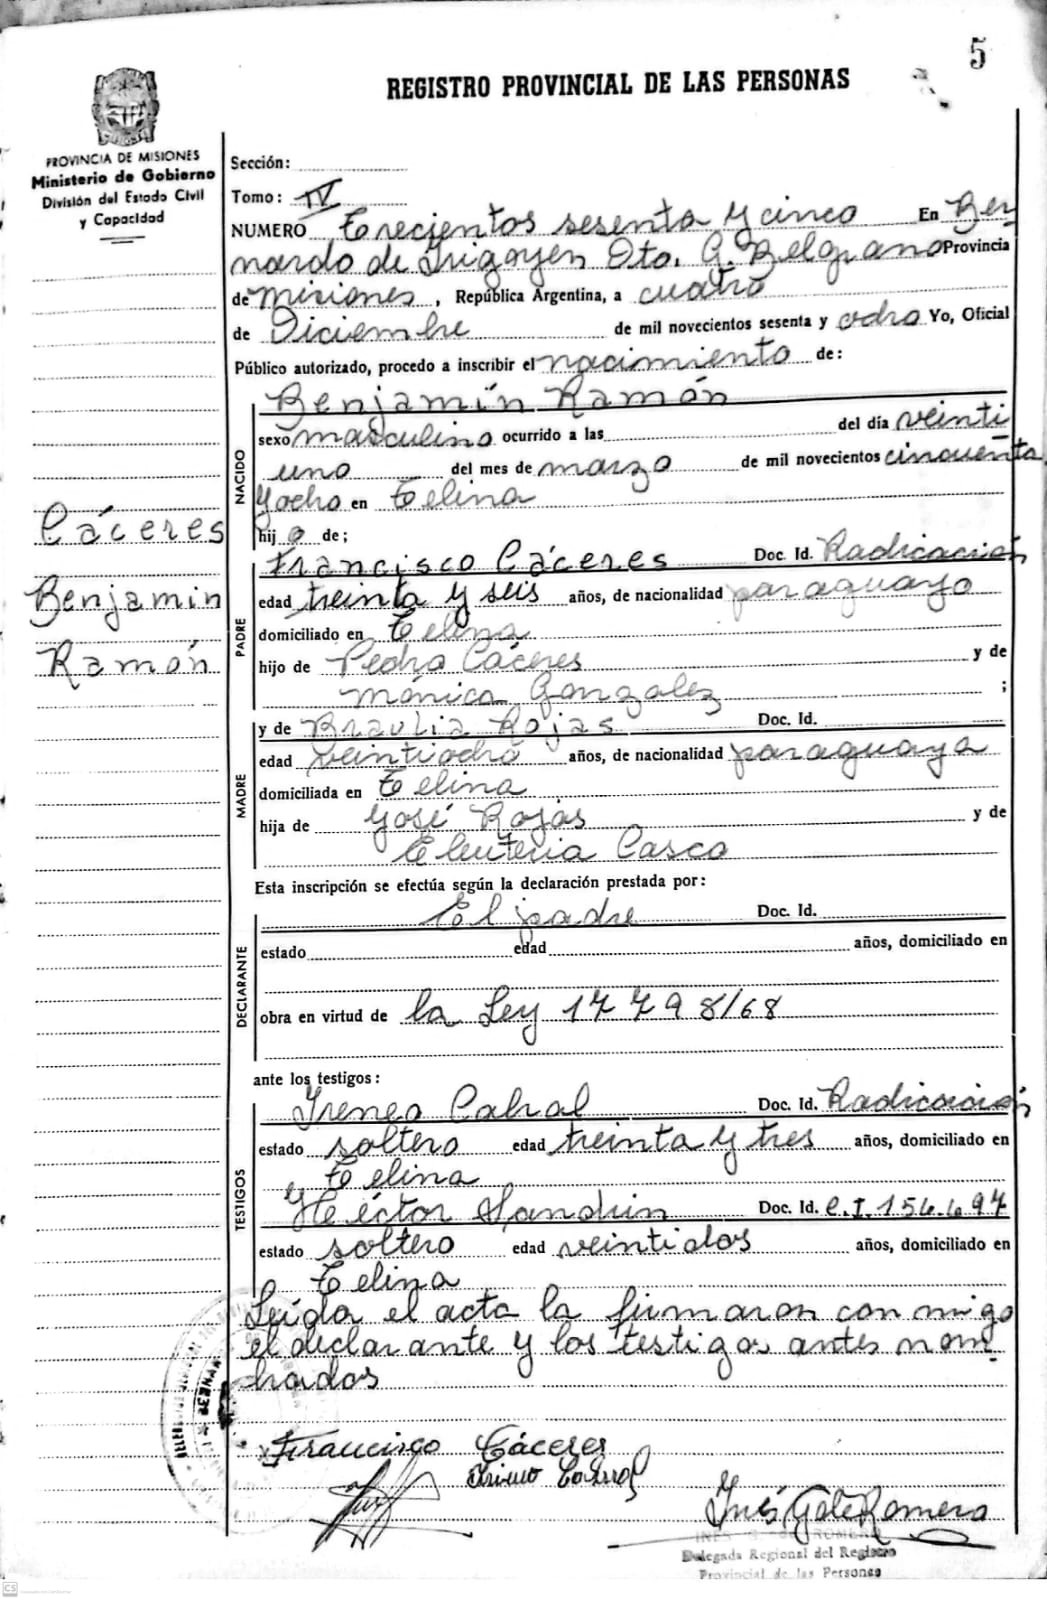 5
REGISTRO PROVINCIAL DE LAS PERSONAS
PROVINCIA DE MISIONES
Ministerio de Gobierno
División del Estado Civil
y Capacidad
Sección:
Tomo: IV
NUMERO Trecientos sesenta y cinco En Ber
nardo de Irigoyen Dto. G. Belgrano Provincia
de Misiones, República Argentina, a cuatro
de Diciembre de mil novecientos sesenta y ocho Yo, Oficial
Público autorizado, procedo a inscribir el nacimiento de:
NACIDO
Benjamín Ramón
sexo masculino ocurrido a las del día veinti
uno del mes de marzo de mil novecientos cincuenta
y ocho en Telina
hijo de;
Cáceres
Benjamin
Ramón
PADRE
Francisco Cáceres Doc. Id. Radicación
edad treinta y seis años, de nacionalidad paraguayo
domiciliado en Telina
hijo de Pedro Cáceres y de
Mónica Gonzalez ;
MADRE
y de Braulia Rojas Doc. Id.
edad veintiocho años, de nacionalidad paraguaya
domiciliada en Telina
hija de José Rojas y de
Eleuteria Casco
Esta inscripción se efectúa según la declaración prestada por:
DECLARANTE
El padre Doc. Id.
estado edad años, domiciliado en
obra en virtud de la Ley 17798/68
ante los testigos:
TESTIGOS
Ireneo Cabral Doc. Id. Radicación
estado soltero edad treinta y tres años, domiciliado en
Telina
Héctor Doc. Id. C.I. 154.697
estado soltero edad veintidos años, domiciliado en
Telina
Leída el acta la firmaron con migo
el declarante y los testigos antes nom
brados
Francisco Cáceres
Inés G de Romero
Delegada Regional del Registro
Provincial de las Personas
CS